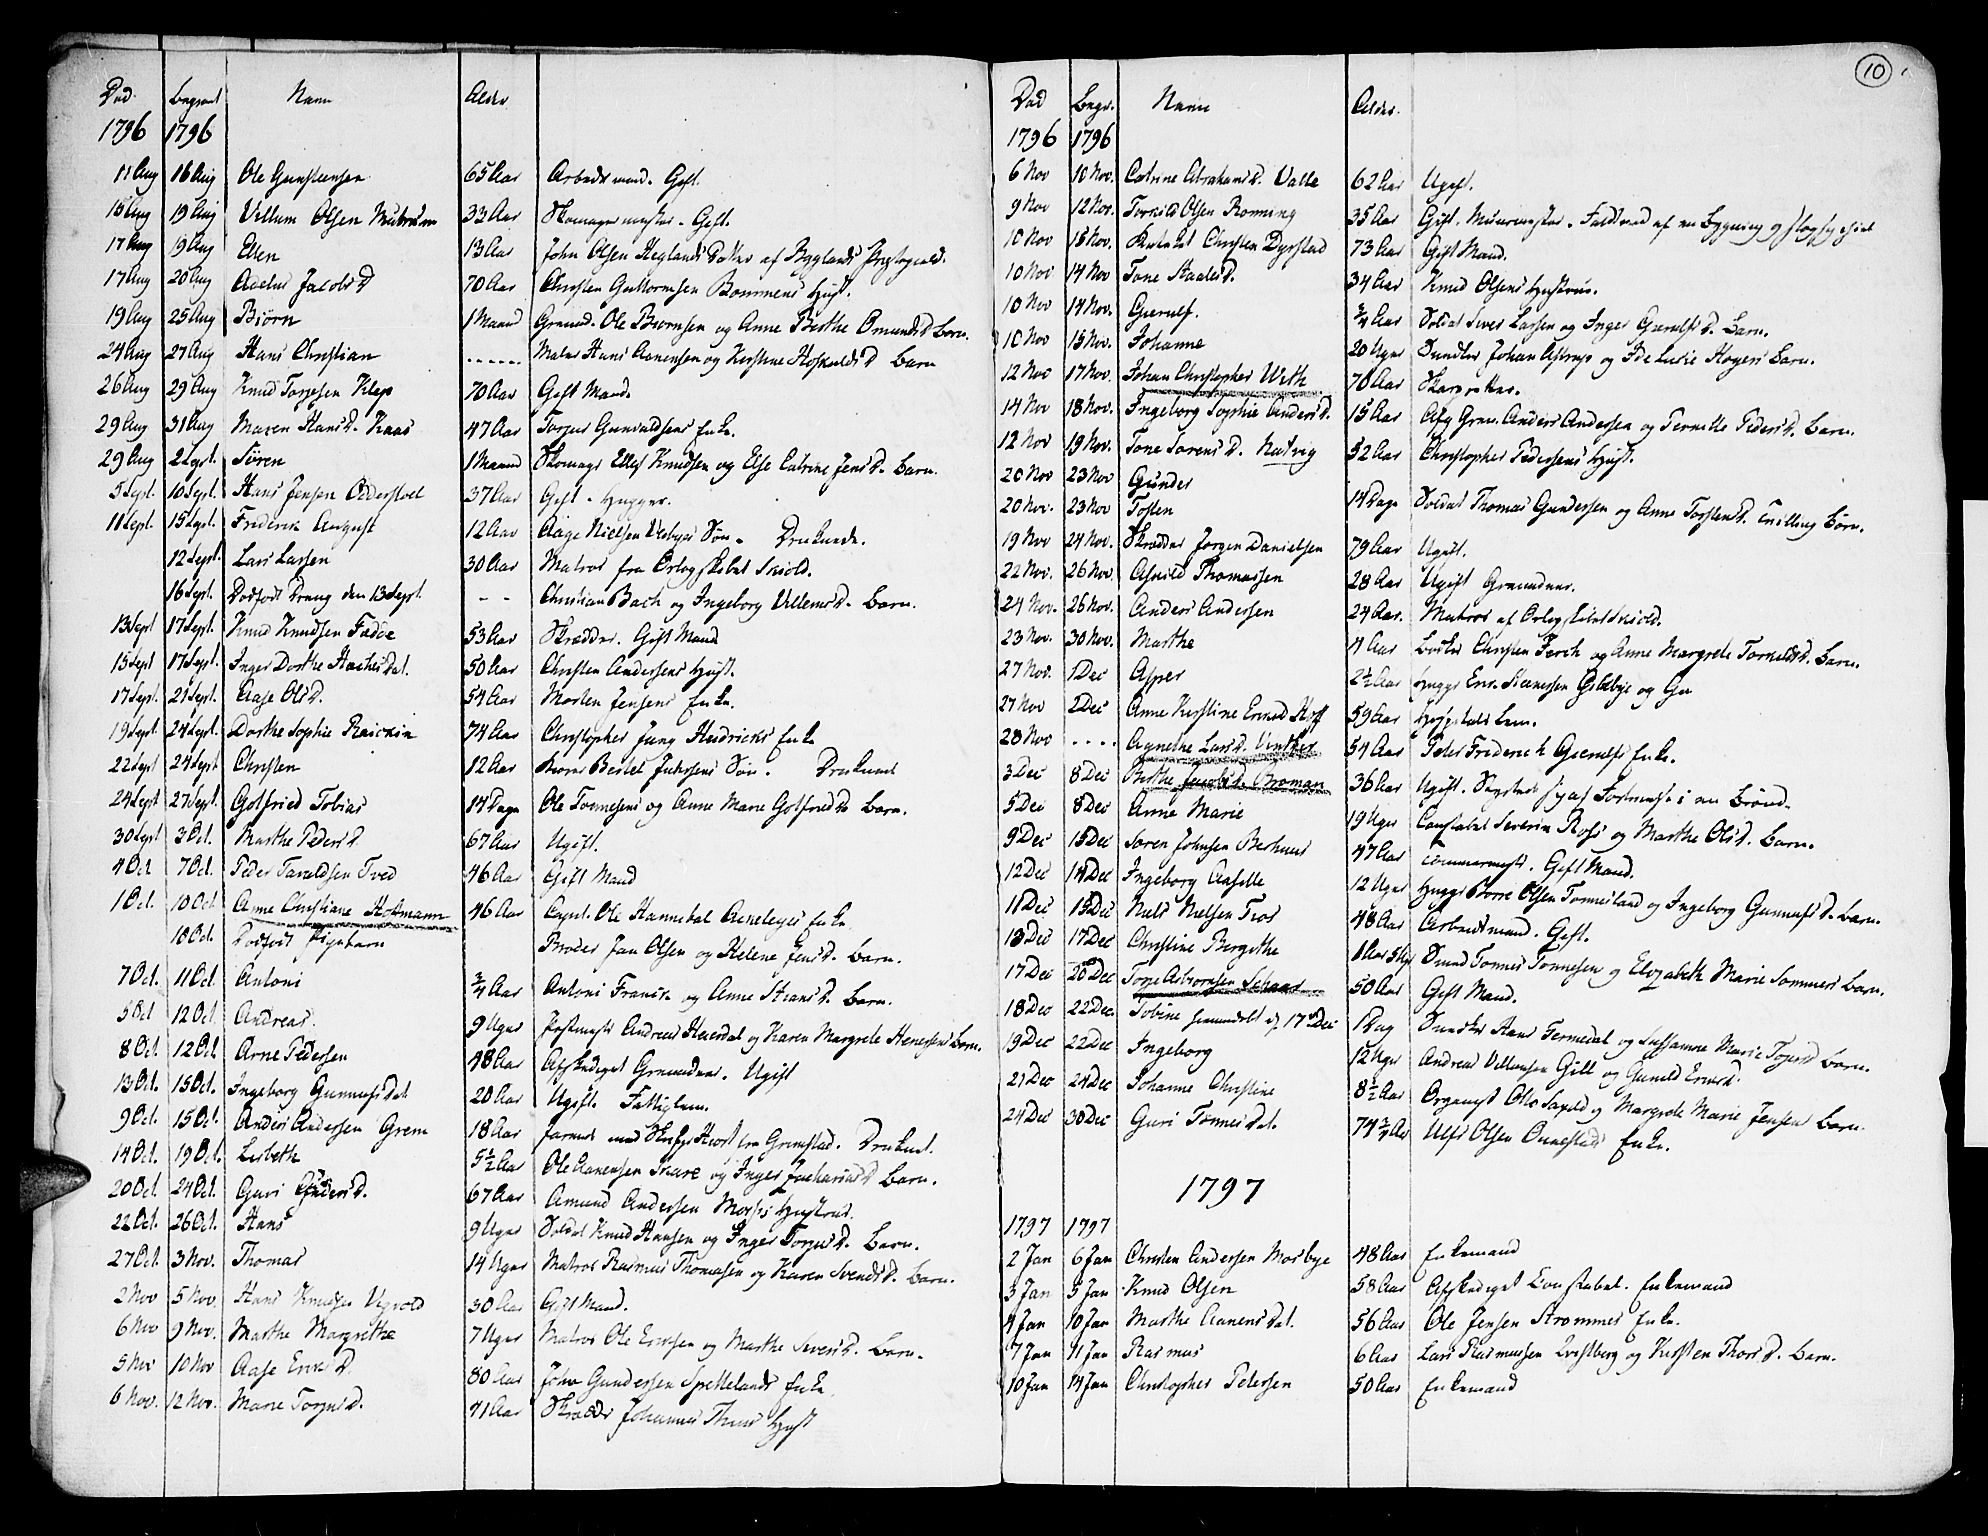 10
Død Begravet Navn Alder
1796 1796
11 Aug 16 Aug Ole Gunsteensen 65 Aar Arbeidsmand. Gift.
15 Aug 19 Aug Villum Olsen 33 Aar Skomagermester. Gift.
17 Aug 19 Aug Ellen 13 Aar John Olsen Heglands Datter af Byglands Præstegield.
17 Aug 20 Aug Jacobs D 70 Aar Christen Guttormsen Bommens Hust.
19 Aug 25 Aug Biørn 1 Maaned Ole Biørnsen og Anne Berthe Omunds D Barn.
24 Aug 27 Aug Hans Christian ------ Mater Hans Aanensen og Kirstine D Barn
26 Aug 29 Aug Knud Torjesen Klep 70 Aar Gift Mand.
29 Aug 31 Aug Maren Hans D. Kaas 47 Aar Torjus Gunvaldsens Enke.
29 Aug 2 Sept. Søren 1 Maaned Skomager Ellef Knudsen og Else Catrine Jens D. Barn.
5 Sept. 10 Sept. Hans Jensen 37 Aar Gift. Hugger.
11 Sept. 15 Sept. Friderik August 12 Aar Aage Nielsen Søn. Druknede.
12 Sept. Lars Larssen 30 Aar Matros fra Orlogskibet Skiold.
16 Sept. Dødfødt Dreng den 13 Sept. - - Christian Bach og Ingeborg Villums D. Barn.
13 Sept 17 Sept. Knud Knudsen 53 Aar Skrædder. Gift Mand
15 Sept 17 Sept. Inger Dorthe Dat. 50 Aar Christen Andersens Hust.
17 Sept. 21 Sept. Aase Ols D. 54 Aar Morten Jensens Enke.
19 Sept 24 Sept. Dorthe Sophie 74 Aar Christopher Jung Hendricks Enke
22 Sept 24 Sept Christen 12 Aar Bertel Søn. Druknet
24 Sept 27 Sept. Gotfried Tobias 14 Dage Ole Tønnesens og Anne Marie Gotfrieds D Barn.
30 Sept 3 Oct. Marthe Peders D. 67 Aar Ugift.
4 Oct 7 Oct. Peder Taraldsen Tved 46 Aar Gift Mand
1 Oct. 10 Oct. Anne Christiane Holtmann 46 Aar Capit. Ole Hannibal Enke
10 Oct. Dødfødt Pigebarn Jan Olsen og Helene Jens D. Barn.
7 Oct. 11 Oct Antoni ¾ Aar Antoni Fransen og Anne Hans D. Barn.
5 Oct 12 Oct Andreas. 9 Uger Postmester Andreas og Karen Margrete Barn.
8 Oct. 12 Oct Arne Pedersen 48 Aar Afskediget Ugift
13 Oct. 15 Oct. Ingeborg Gunnufs Dat 20 Aar Ugift. Fattiglem.
9 Oct. 15 Oct. Anders Andersen Grem 18 Aar fra Grimstad. Druknet.
14 Oct. 19 Oct. Lisbeth 5½ Aar Ole Aanensen og Inger Zacharias D Barn.
20 Oct. 24 Oct. Guri D. 67 Aar Amund Andersen Hustrue.
22 Oct. 26 Oct. Hans 9 Uger Soldat Knud Hansen og Inger Torjus D. Barn.
27 Oct 3 Nov. Thomas 14 Uger Matros Rasmus Thomasen og Karen Svends D. Barn.
2 Nov 5 Nov. Hans Knudsen 30 Aar Gift Mand.
6 Nov 9 Nov. Marthe Margrethe 7 Uger Matros Ole Ericsen og Marthe Sivers D. Barn.
5 Nov 10 Nov Aase Erics D 80 Aar John Gundersen Spettelands Enke.
6 Nov. 12 Nov. Marie Torjus D. 41 Aar Skrædder Johannes Hust
Død Begr. Navn Alder.
1796 1796
6 Nov 10 Nov. Catrine Abrahams D. Valle 62 Aar Ugift.
9 Nov 12 Nov. Torkild Olsen Rønning 35 Aar Gift. Muurmester. Faldt ned af en Bygning og slog sig ihiel
10 Nov 15 Nov. Christen Dyrstad 73 Aar Gift Mand.
10 Nov 14 Nov Tone D. 34 Aar Knud Olsens Hustrue.
10 Nov 14 Nov. ¾ Aar Soldat Siver Larsen og Inger D. Barn.
10 Nov 15 Nov. Johanne 20 Uger Johan Astrup og Ide Lucie Høyers Barn.
12 Nov 17 Nov. Johan Christopher Wirth 70 Aar
14 Nov 18 Nov. Ingeborg Sophie Anders D. 15 Aar Afg. Anders Andersen og Pernille Peders D. Barn.
12 Nov 19 Nov. Tone Sørens D. Natvig 52 Aar Christopher Pedersens Hust.
20 Nov 23 Nov Gunder
20 Nov. 23 Nov Tosten 14 Dage Soldat Thomas Gundersen og Anne Torstens D. Tvilling Børn.
19 Nov 24 Nov. Skrædder Jørgen Danielsen 79 Aar Ugift.
22 Nov. 26 Nov Thomassen 28 Aar Ugift
24 Nov. 26 Nov. Anders Andersen 24 Aar. Matros af Orlogskibet Skiold.
23 Nov. 30 Nov. Marthe 4 Aar Christen Ferch og Anne Margrete D. Barn.
27 Nov. 1 Dec Asper 2½ Aar Hugger og
27 Nov 2 Dec Anne Kirstine 59 Aar Hospitals Lem.
28 Nov ---- Agnethe Lars D. Vinther 54 Aar Peder Friderich Enke.
3 Dec 8 Dec Berthe Jacobs D. Broman 36 Aar Ugift. i en Brønd.
5 Dec 8 Dec Anne Marie 19 Uger Constabel Severin Ross og Marthe Ols D. Barn.
9 Dec 15 Dec Søren Johnsen 47 Aar Tømmermest. Gift Mand.
12 Dec 14 Dec Ingeborg 12 Uger Hugger Børre Olsen Tønnesland og Ingeborg Gunnufs D. Barn.
11 Dec 15 Dec Niels Nielsen 48 Aar Arbeidsmand. Gift.
13 Dec 17 Dec Christine Bergithe 1 Aar Tønnes Tønnesen og Elizabeth Marie Sommers Barn.
17 Dec 20 Dec Torje Asbiørnsen Schaar 50 Aar Gift Mand.
18 Dec 22 Dec Tobine hiemmedøbt d. 17 Dec 1 Dag og Susanne Marie D. Barn.
19 Dec 22 Dec Ingeborg 12 Uger Andreas Villumsen Gill og Gunild Erics D.
21 Dec 24 Dec Johanne Christine 8½ Aar Organist Otto og Margrete Marie Jensen Barn.
24 Dec 30 Dec Guri Tønnes Dat. 74¾ Aar Ulfs Olsen Enke.
1797
1797 1797
2 Jan 6 Jan Christen Andersen Mosbye 48 Aar Enkemand
3 Jan 5 Jan Knud Olsen 58 Aar Afskediget Constabel. Enkemand
4 Jan 10 Jan Marthe Aanens Dat. 56 Aar Ole Jensen Strømmes Enke.
7 Jan 11 Jan Rasmus 6 Aar Lars Rasmusen og Kirsten Thors D. Barn.
10 Jan 14 Jan Christopher Petersen 50 Aar Enkemand